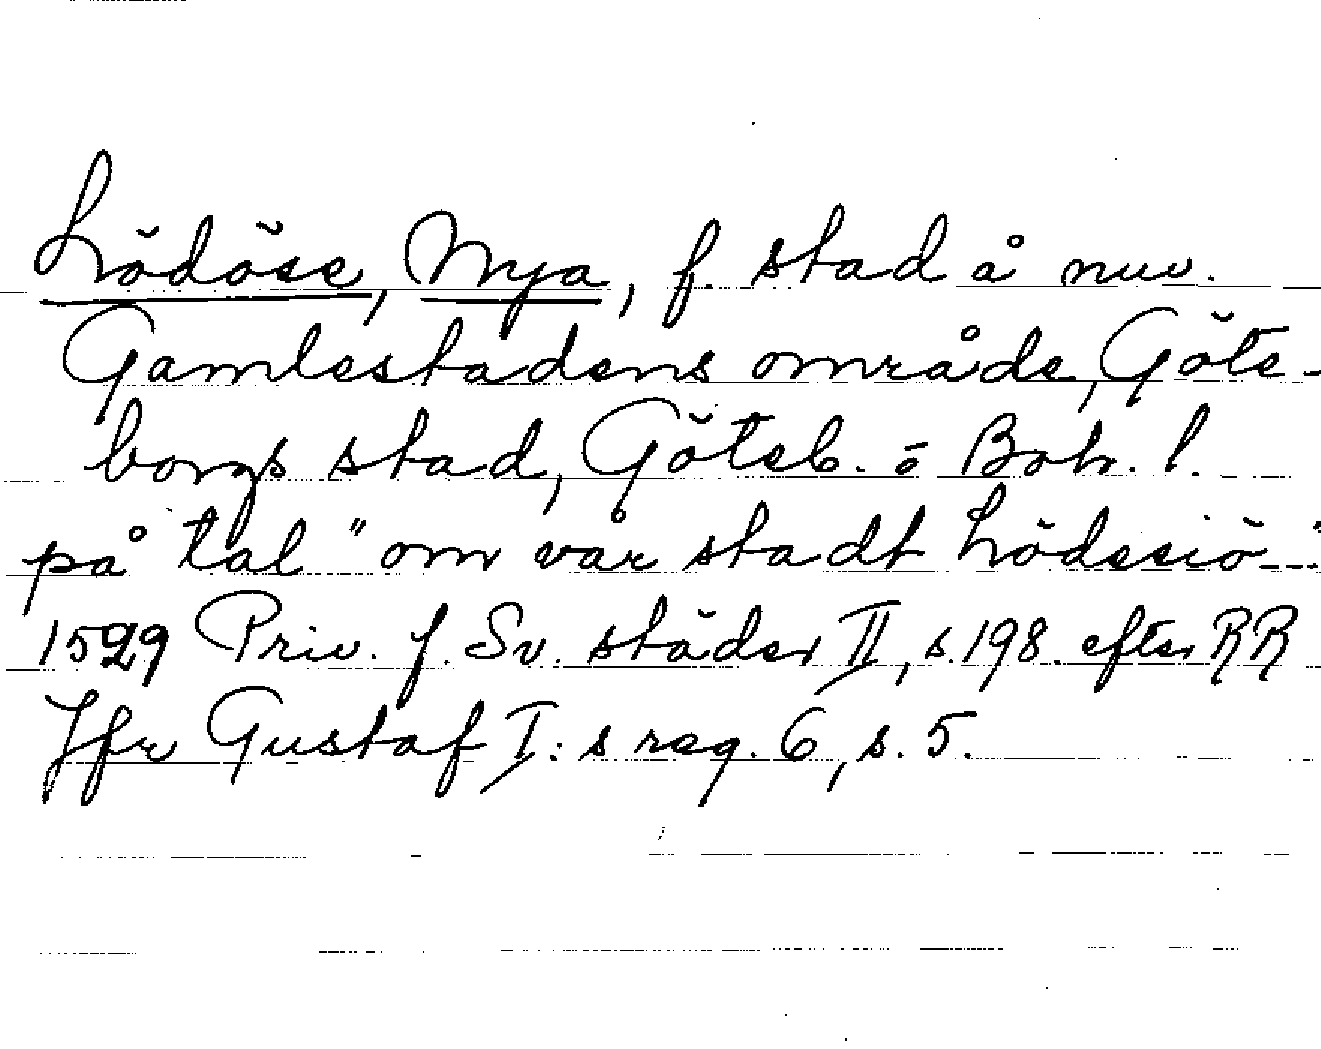 Lödöse, Nya, f. stad å nuv.
Gamlestadens område, Göte-
borgs stad, Göteb. o Boh. l.
på tal "om vår stadt Lödesiö---"
1529 Priv. f. Sv. städer II, s. 198. efter RR
Jfr Gustaf I:s reg. 6, s. 5.